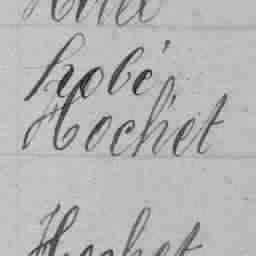 hobé
Hochet
Hochet